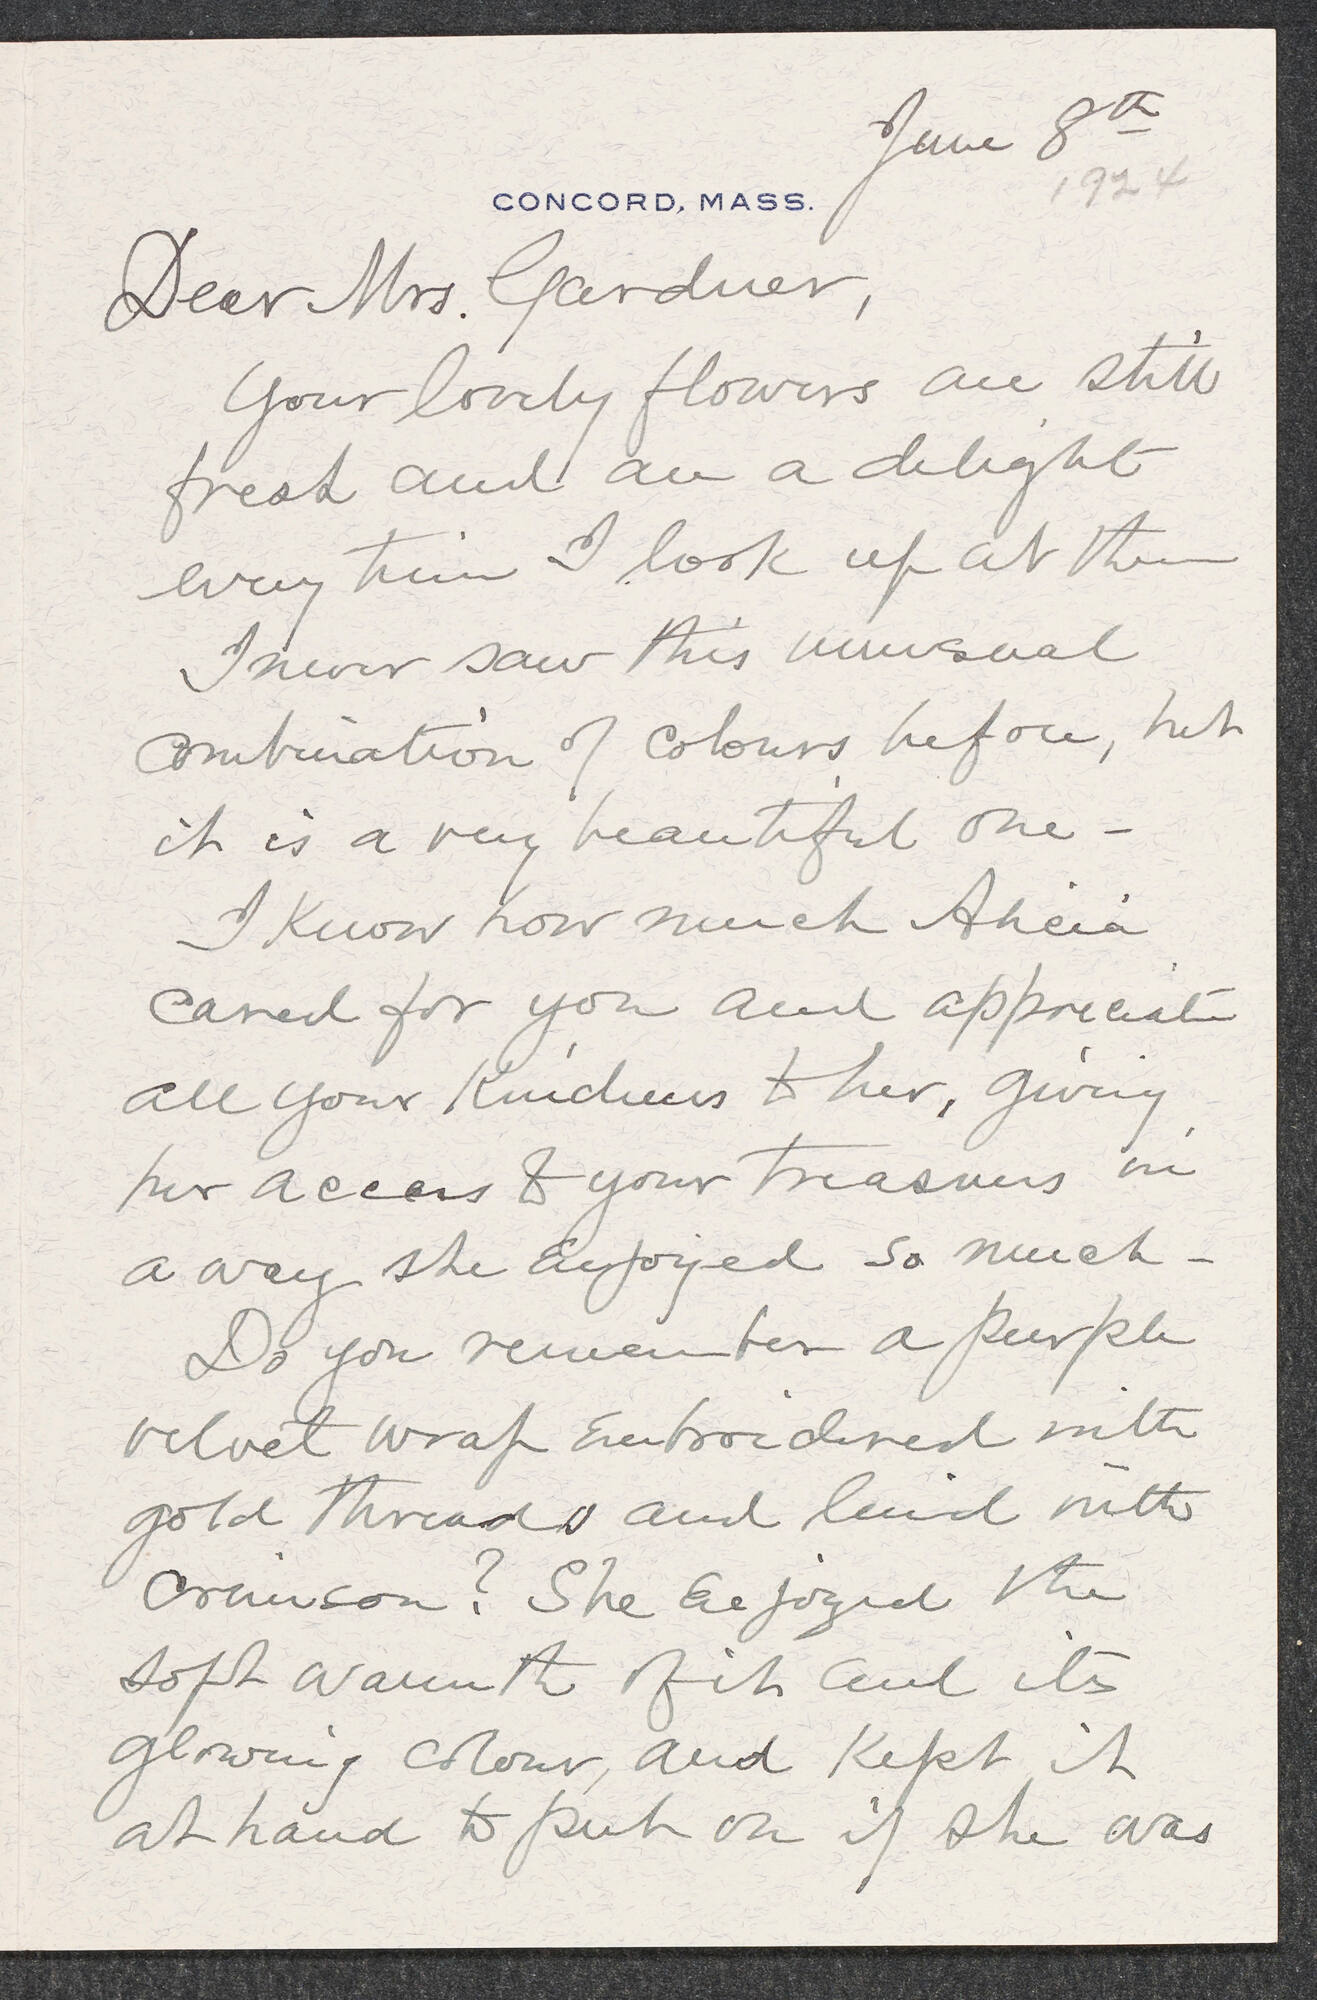 June 8th
1924
CONCORD, MASS.
Dear Mrs. Gardner,
Your lovely flowers are still
fresh and are a delight
every time I look up at them
I never saw this unusual
combination of colours before, but
it is a very beautiful one -
I know how much Alicia
cared for you and appreciate
all your kindness to her, giving
her access to your treasures in
a way she enjoyed so much -
Do you remember a purple
velvet wrap embroidered with
gold threads and lined with
crimson? She enjoyed the
soft warmth of it and its
glowing colour, and kept it
at hand to put on if she was